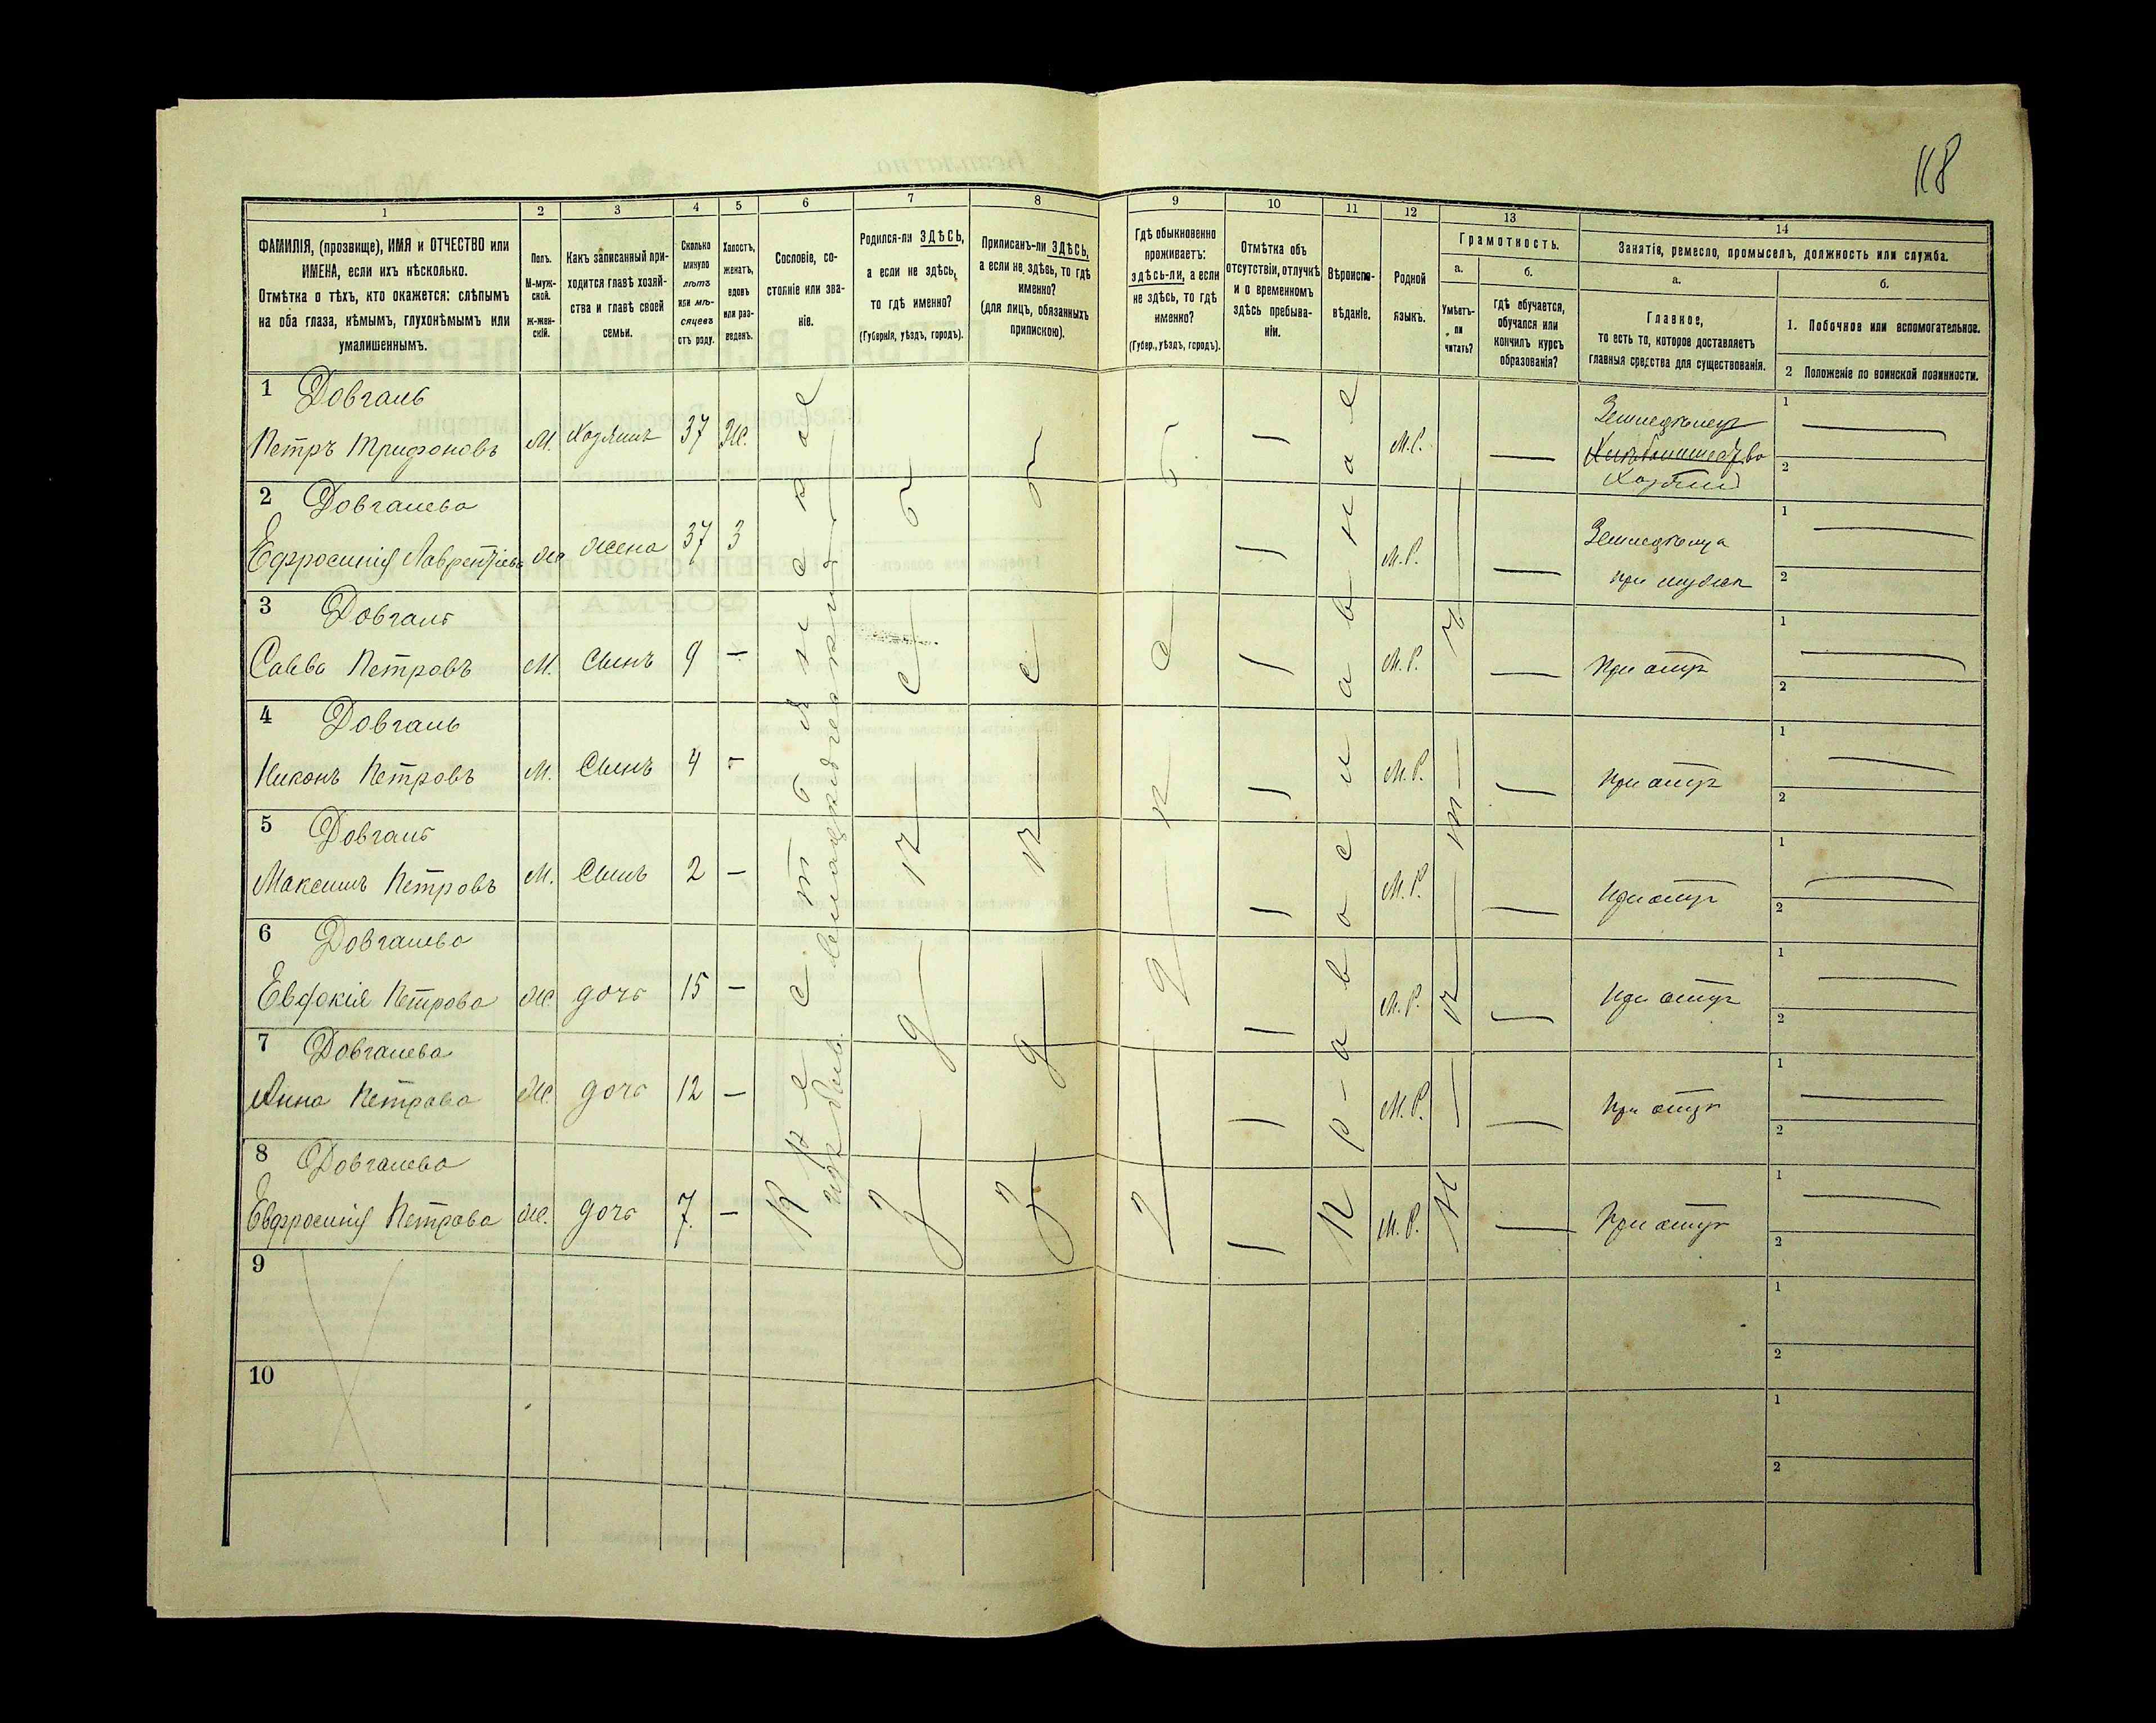 118
1
2
3
4
5
6
7
8
9
10
11
12
13
14
ФАМИЛІЯ, (прозвище), ИМЯ и ОТЧЕСТВО или
ИМЕНА, если ихъ нѣсколько.
Отмѣтка о тѣхъ, кто окажется: слѣпымъ
на оба глаза, нѣмымъ, глухонѣмымъ или
умалишеннымъ.
Полъ.
М-муж-
ской.
Ж-жен-
скій.
Какъ записанный при-
ходится главѣ хозяй-
ства и главѣ своей
семьи.
Сколько
минуло
лѣтъ
или мѣ-
сяцевъ
отъ роду.
Холостъ,
женатъ,
вдовъ
или раз-
веденъ.
Сословіе, со-
стояніе или зва-
ніе.
Родился-ли ЗДѢСЬ,
а если не здѣсь,
то гдѣ именно?
(Губернія, уѣздъ, городъ).
Приписанъ-ли ЗДѢСЬ,
а если не здѣсь, то гдѣ
именно?
(для лицъ, обязанныхъ
припискою).
Гдѣ обыкновенно
проживаетъ:
здѣсь-ли, а если
не здѣсь, то гдѣ
именно?
(Губер., уѣздъ, городъ).
Отмѣтка объ
отсутствіи, отлучкѣ
и о временномъ
здѣсь пребыва-
ніи.
Вѣроиспо-
вѣданіе.
Родной
языкъ.
Грамотность.
а.
Умѣетъ-
ли
читать?
б.
гдѣ обучается,
обучался или
кончилъ курсъ
образованія?
Занятіе, ремесло, промыселъ, должность или служба.
а.
Главное,
то есть то, которое доставляетъ
главныя средства для существованія.
б.
1. Побочное или вспомогательное.
2 Положеніе по воинской повинности.
1 Довгаль
Петръ Трифоновъ М. Хозяинъ 37 Ж. М.Р. Земледѣлецъ
Хозяинъ
1
2
2 Довгалева
Ефросинія Лаврентіева Ж жена 37 З М.Р. Земледѣлица
при мужѣ
1
2
3 Довгаль
Савва Петровъ М. Сынъ 9 — М.Р. При отцѣ
1
2
4 Довгаль
Никонъ Петровъ М. Сынъ 4 — М.Р. При отцѣ
1
2
5 Довгаль
Максимъ Петровъ М. Сынъ 2 — М.Р. При отцѣ
1
2
6 Довгалева
Евдокія Петрова Ж. дочь 15 — М.Р. При отцѣ
1
2
7 Довгалева
Анна Петрова Ж. дочь 12 — М.Р. При отцѣ
1
2
8 Довгалева
Евфросинія Петрова Ж. дочь 7. — М.Р. При отцѣ
1
2
Крестьянское
изъ
здѣсь
здѣсь
здѣсь
Православное
Нѣтъ
9
1
2
10
1
2